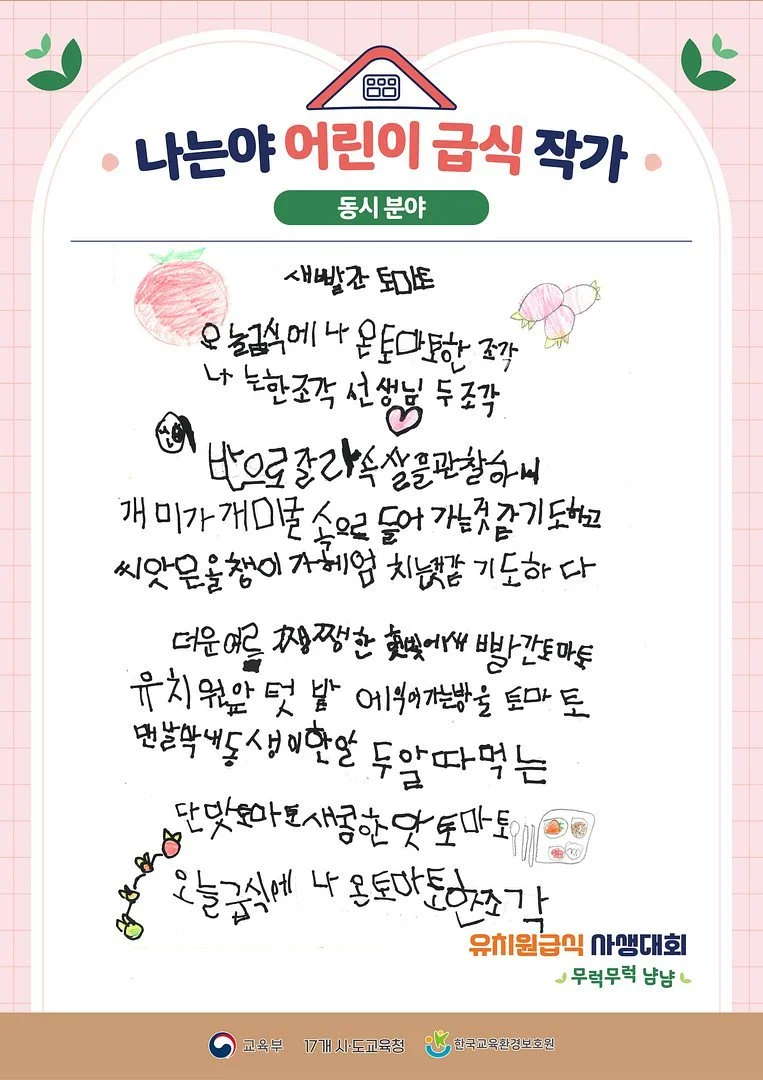 나는야 어린이 급식 작가
동시 분야
새빨간 토마토
오늘급식에 나 온토마토한 조각
나 는한조각 선생님 두조각
반으로잘라속살을관찰하니
개미가개미굴 속으로 들어 가는것 같기도하고
씨앗은올챙이 가헤엄 치는것같 기도하다
더운여름 쨍쨍한 햇빛에새빨간토마토
유치원앞 텃 밭 에익어가는방울 토마토
맨날막내동생이한알 두알따먹는
단맛토마토새콤한맛토마토
오늘급식에 나 온토마토한조각
유치원급식 사생대회
무럭무럭 냠냠
교육부 17개 시·도교육청 한국교육환경보호원